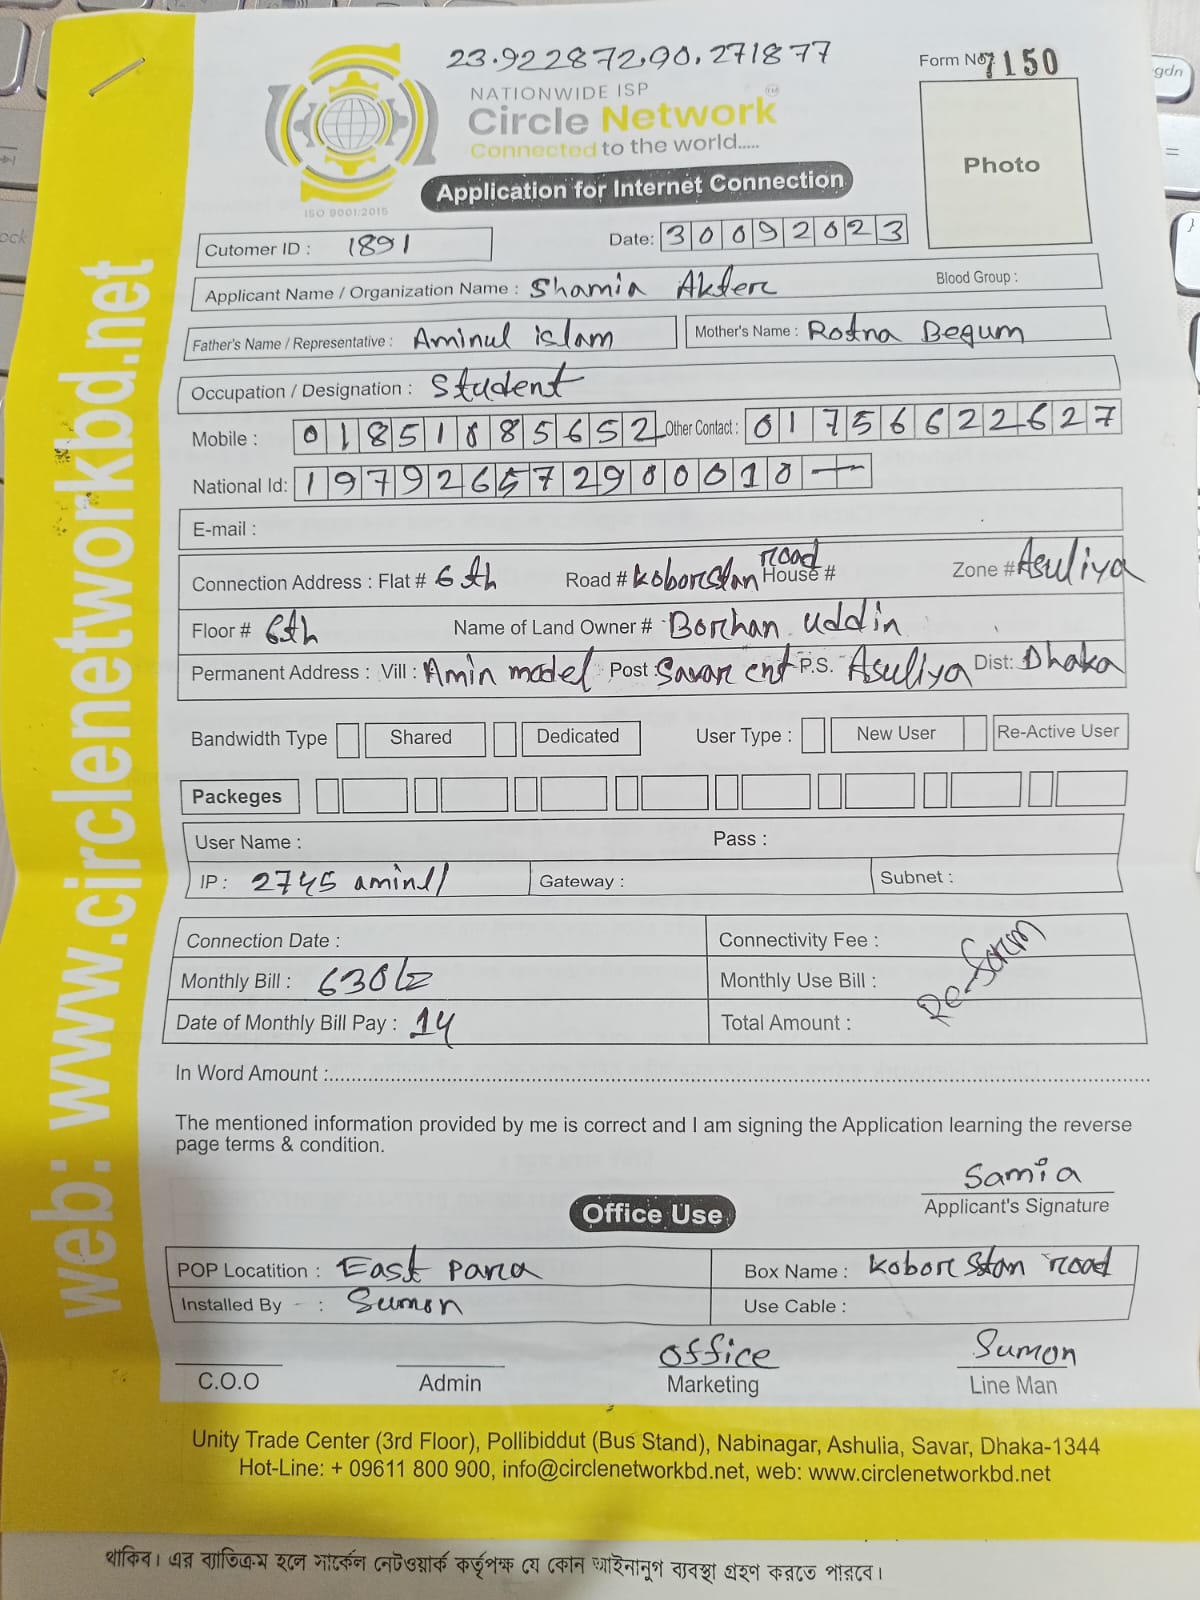 23.922872,90.271877
Form No: 7150
NATIONWIDE ISP
Circle Network TM
Connected to the world.....
ISO 9001:2015
Application for Internet Connection
Photo
Cutomer ID : 1891
Date: 30092023
Applicant Name / Organization Name : Shamia Akter
Blood Group :
Father's Name / Representative : Aminul islam
Mother's Name : Rotna Begum
Occupation / Designation : Student
Mobile : 01851085652 Other Contact : 01756622627
National Id: 1979265729800010 —
E-mail :
Connection Address : Flat # 6th Road # koborstan road House # Zone # Asuliya
Floor # 6th Name of Land Owner # Borhan uddin
Permanent Address : Vill : Amin model Post : Savar cnt P.S. Asuliya Dist: Dhaka
Bandwidth Type Shared Dedicated User Type : New User Re-Active User
Packeges
User Name : Pass :
IP : 2745 Gateway : Subnet :
Connection Date : Connectivity Fee :
Monthly Bill : 630/= Monthly Use Bill :
Date of Monthly Bill Pay : 14 Total Amount :
Re-form
In Word Amount :
The mentioned information provided by me is correct and I am signing the Application learning the reverse
page terms & condition.
Samia
Applicant's Signature
Office Use
POP Locatition : East para Box Name : koborstan road
Installed By : Sumon Use Cable :
office Sumon
C.O.O Admin Marketing Line Man
Unity Trade Center (3rd Floor), Pollibiddut (Bus Stand), Nabinagar, Ashulia, Savar, Dhaka-1344
Hot-Line: + 09611 800 900, info@circlenetworkbd.net, web: www.circlenetworkbd.net
থাকিব। এর ব্যাতিক্রম হলে সার্কেল নেটওয়ার্ক কর্তৃপক্ষ যে কোন আইনানুগ ব্যবস্থা গ্রহণ করতে পারবে।
web: www.circlenetworkbd.net